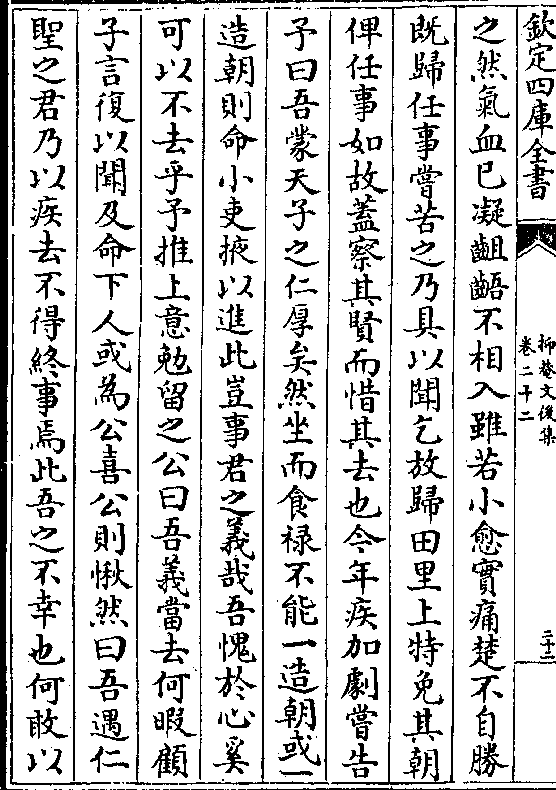 欽定四庫全書
抑菴文後集
卷二十二
三十二
之然氣血已凝齟齬不相入雖若小愈實痛楚不自勝
既歸任事嘗苦之乃具以聞乞放歸田里上特免其朝
俾任事如故蓋察其賢而惜其去也今年疾加劇嘗告
子曰吾蒙天子之仁厚矣然坐而食禄不能一造朝或一
造朝則命小吏掖以進此豈事君之義哉吾愧於心奚
可以不去乎予推上意勉留之公曰吾義當去何暇顧
子言復以聞及命下人或為公喜公則愀然曰吾遇仁
聖之君乃以疾去不得終事焉此吾之不幸也何敢以